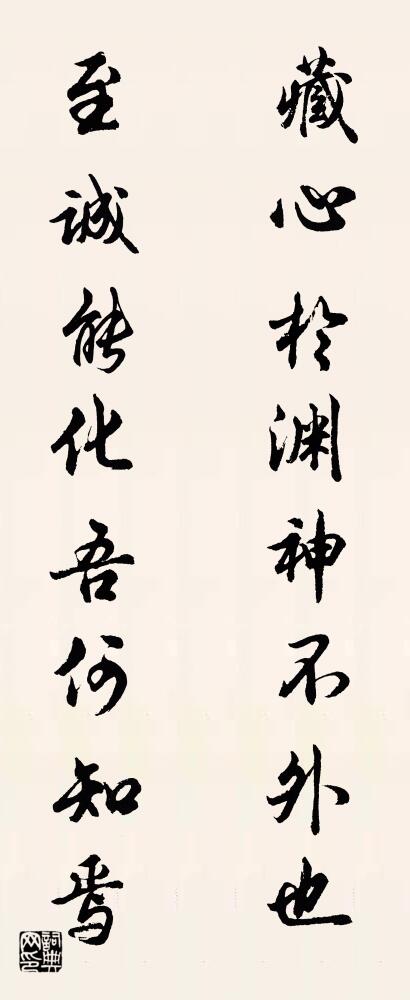 藏心於渊神不外也
至誠能化吾何知焉
詞典网印